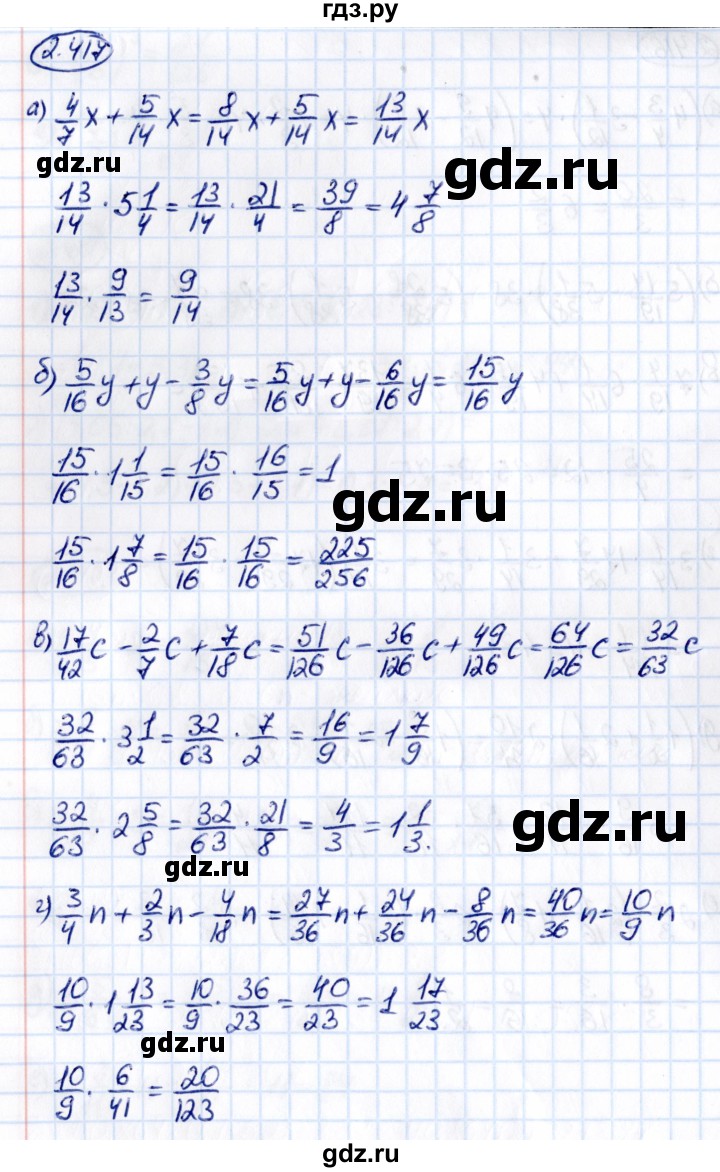 гдз.ру
2.417
а) 4/7 x + 5/14 x = 8/14 x + 5/14 x = 13/14 x
gdz.ru
gdz.ru
13/14 · 5 1/4 = 13/14 · 21/4 = 39/8 = 4 7/8
13/14 · 9/13 = 9/14
б) 5/16 y + y - 3/8 y = 5/16 y + y - 6/16 y = 15/16 y
15/16 · 1 1/15 = 15/16 · 16/15 = 1
gdz.ru
15/16 · 1 7/8 = 15/16 · 15/16 = 225/256
в) 17/42 c - 2/7 c + 7/18 c = 51/126 c - 36/126 c + 49/126 c = 64/126 c = 32/63 c
32/63 · 3 1/2 = 32/63 · 7/2 = 16/9 = 1 7/9
32/63 · 2 5/8 = 32/63 · 21/8 = 4/3 = 1 1/3.
gdz.ru
gdz.ru
г) 3/4 n + 2/3 n - 4/18 n = 27/36 n + 24/36 n - 8/36 n = 40/36 n = 10/9 n
10/9 · 1 13/23 = 10/9 · 36/23 = 40/23 = 1 17/23
gdz.ru
10/9 · 6/41 = 20/123
gdz.ru